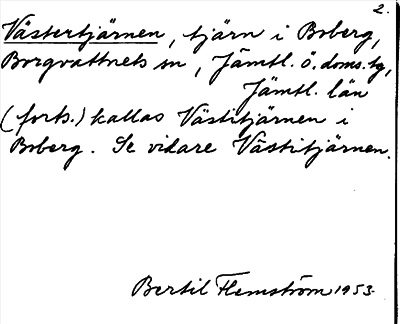 2.
Västertjärnen, tjärn i Boberg,
Borgvattnets sn, Jämtl. ö. doms. tg,
Jämtl. län
(forts.) kallas Västitjärnen i
Boberg. Se vidare Västitjärnen.
Bertil Flemström 1953.